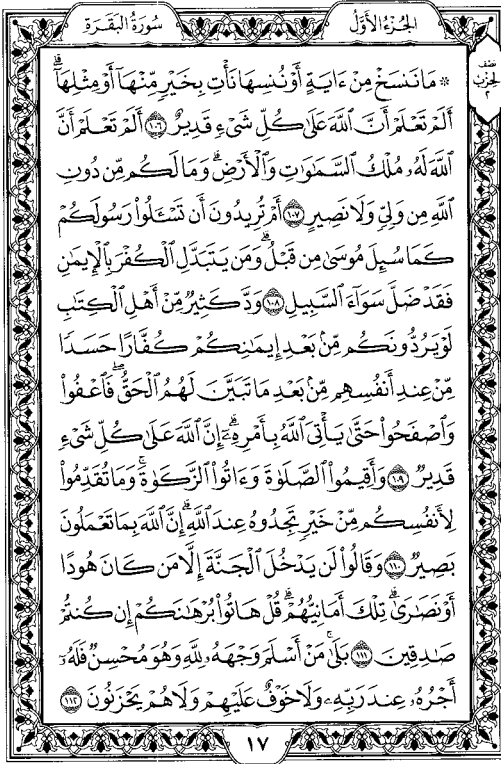 سُورَةُ البَقَرَةِ
الجُزْءُ الأَوَّلُ
نصف
الحزب
٢
۞ مَا نَنسَخْ مِنْ ءَايَةٍ أَوْ نُنسِهَا نَأْتِ بِخَيْرٍ مِّنْهَآ أَوْ مِثْلِهَآۗ
أَلَمْ تَعْلَمْ أَنَّ ٱللَّهَ عَلَىٰ كُلِّ شَىْءٍ قَدِيرٌ ١٠٦ أَلَمْ تَعْلَمْ أَنَّ
ٱللَّهَ لَهُۥ مُلْكُ ٱلسَّمَٰوَٰتِ وَٱلْأَرْضِۗ وَمَا لَكُم مِّن دُونِ
ٱللَّهِ مِن وَلِىٍّ وَلَا نَصِيرٍ ١٠٧ أَمْ تُرِيدُونَ أَن تَسْـَٔلُوا۟ رَسُولَكُمْ
كَمَا سُئِلَ مُوسَىٰ مِن قَبْلُۗ وَمَن يَتَبَدَّلِ ٱلْكُفْرَ بِٱلْإِيمَٰنِ
فَقَدْ ضَلَّ سَوَآءَ ٱلسَّبِيلِ ١٠٨ وَدَّ كَثِيرٌ مِّنْ أَهْلِ ٱلْكِتَٰبِ
لَوْ يَرُدُّونَكُم مِّنۢ بَعْدِ إِيمَٰنِكُمْ كُفَّارًا حَسَدًا
مِّنْ عِندِ أَنفُسِهِم مِّنۢ بَعْدِ مَا تَبَيَّنَ لَهُمُ ٱلْحَقُّۖ فَٱعْفُوا۟
وَٱصْفَحُوا۟ حَتَّىٰ يَأْتِىَ ٱللَّهُ بِأَمْرِهِۦٓۗ إِنَّ ٱللَّهَ عَلَىٰ كُلِّ شَىْءٍ
قَدِيرٌ ١٠٩ وَأَقِيمُوا۟ ٱلصَّلَوٰةَ وَءَاتُوا۟ ٱلزَّكَوٰةَۚ وَمَا تُقَدِّمُوا۟
لِأَنفُسِكُم مِّنْ خَيْرٍ تَجِدُوهُ عِندَ ٱللَّهِۗ إِنَّ ٱللَّهَ بِمَا تَعْمَلُونَ
بَصِيرٌ ١١٠ وَقَالُوا۟ لَن يَدْخُلَ ٱلْجَنَّةَ إِلَّا مَن كَانَ هُودًا
أَوْ نَصَٰرَىٰۗ تِلْكَ أَمَانِيُّهُمْۗ قُلْ هَاتُوا۟ بُرْهَٰنَكُمْ إِن كُنتُمْ
صَٰدِقِينَ ١١١ بَلَىٰۚ مَنْ أَسْلَمَ وَجْهَهُۥ لِلَّهِ وَهُوَ مُحْسِنٌ فَلَهُۥٓ
أَجْرُهُۥ عِندَ رَبِّهِۦ وَلَا خَوْفٌ عَلَيْهِمْ وَلَا هُمْ يَحْزَنُونَ ١١٢
١٧